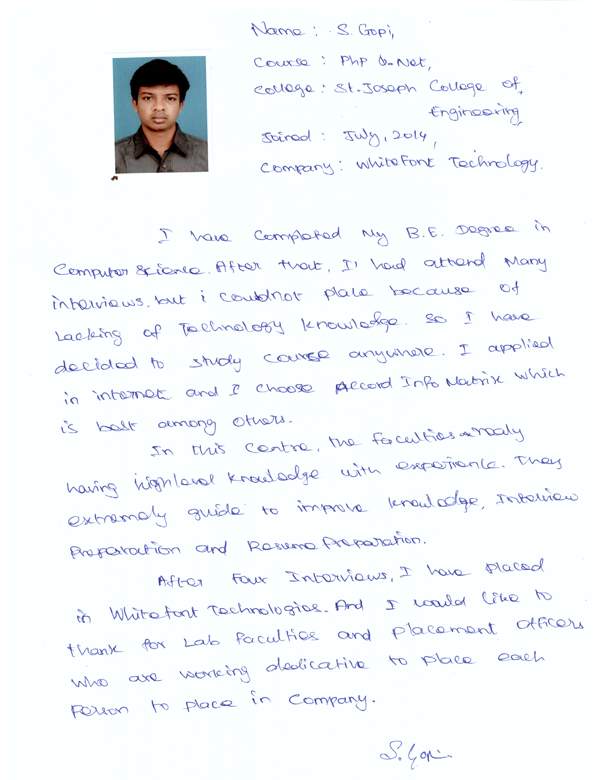 Name : S. Gopi,
Course : PhP &.Net,
College : St. Joseph College of
Engineering,
Joined : July, 2014,
Company : WhiteFont Technology.
I have Completed My B.E. Degree in
Computer Science. After that, I had attend Many
interviews. but i could not place because of
Lacking of Technology knowledge. So I have
decided to study course anywhere. I applied
in internet and I choose Accord Info Matrix which
is best among others.
In this centre, the faculties are realy
having high level knowledge with experience. They
extremely guide to improve knowledge, Interview
Preparation and Resume Preparation.
After Four Interviews, I have Placed
in WhiteFont Technologies. And I would like to
thank for Lab faculties and placement officers
who are working dedicative to place each
Person to place in Company.
S. Gopi